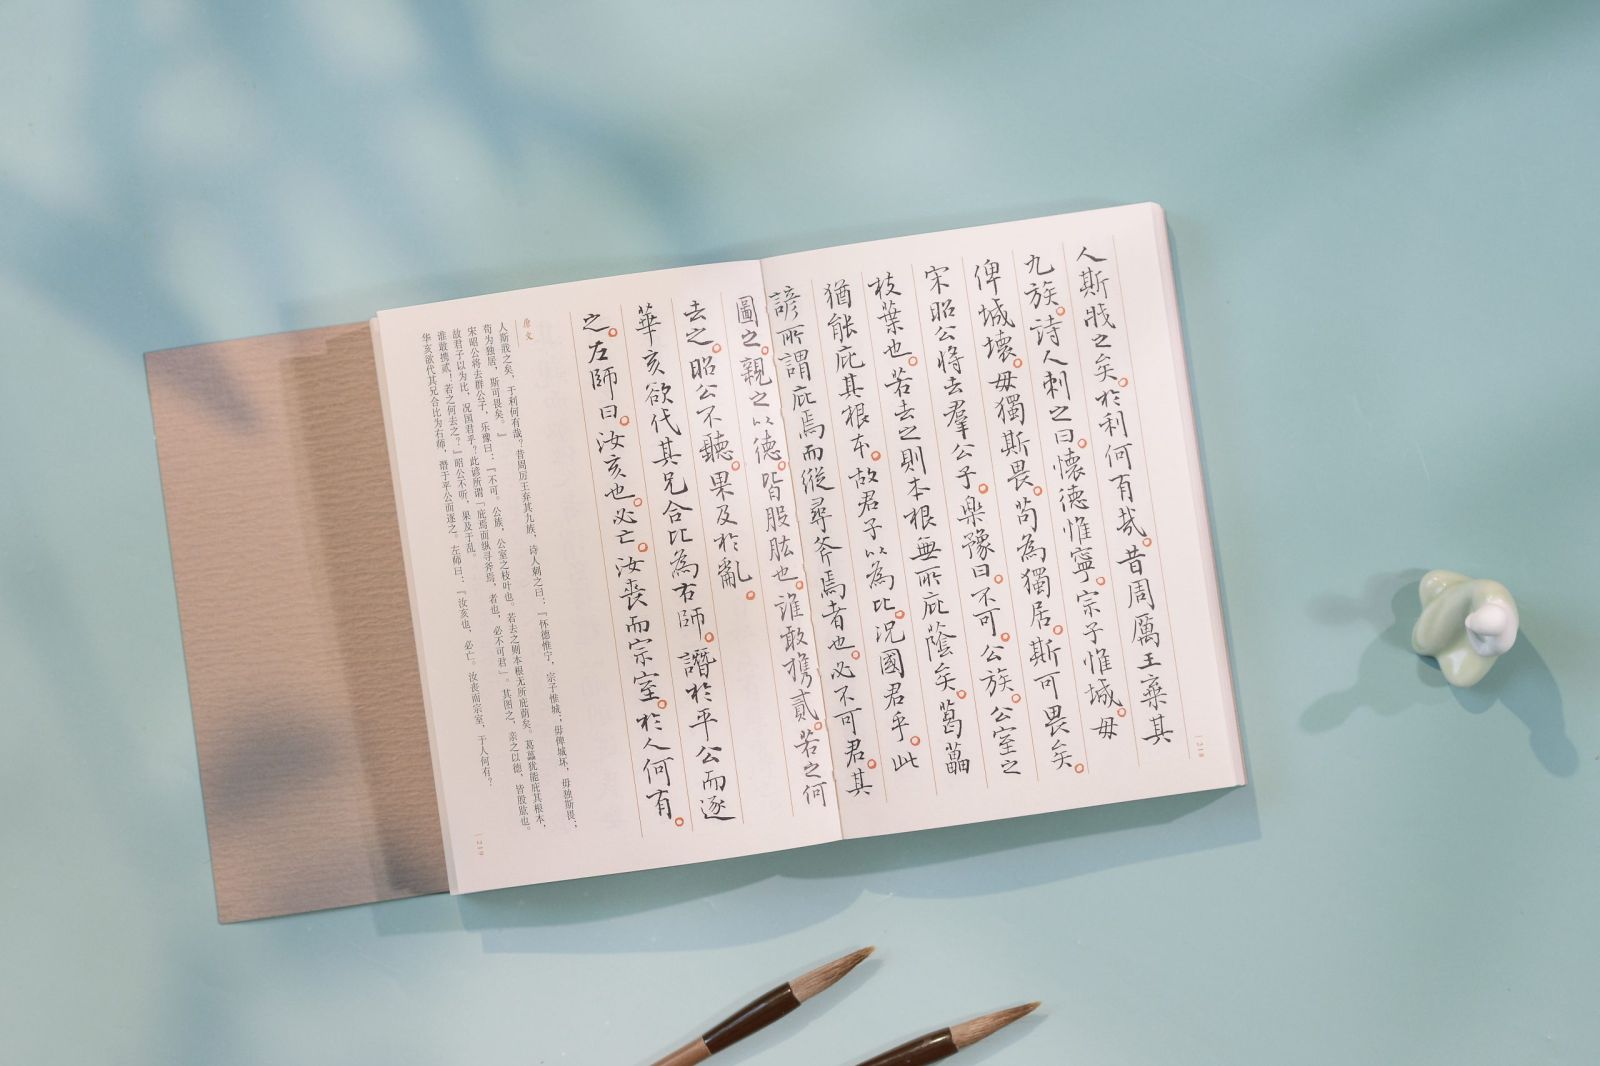 人斯戕之矣於利何有哉昔周厲王棄其
九族詩人刺之曰懷德惟寧宗子惟城毋
俾城壞毋獨斯畏苟為獨居斯可畏矣
宋昭公將去羣公子樂豫曰不可公族公室之
枝葉也若去之則本根無所庇蔭矣葛藟
猶能庇其根本故君子以為比況國君乎此
諺所謂庇焉而縱尋斧焉者也必不可君其
圖之親之以德皆股肱也誰敢攜貳若之何
去之昭公不聽果及於亂
華亥欲代其兄合比為右師譖於平公而逐
之左師曰汝亥也必亡汝喪而宗室於人何有
218
原文
人斯戕之矣，于利何有哉？昔周厉王弃其九族，诗人刺之曰：『怀德惟宁，宗子惟城；毋俾城坏，毋独斯畏；
苟为独居，斯可畏矣。』
宋昭公将去群公子，乐豫曰：『不可。公族，公室之枝叶也。若去之则本根无所庇荫矣。葛藟犹能庇其根本，
故君子以为比，况国君乎？此谚所谓『庇焉而纵寻斧焉』者也，必不可君。其图之，亲之以德，皆股肱也。
谁敢携贰！若之何去之？』昭公不听，果及于乱。
华亥欲代其兄合比为右师，谮于平公而逐之。左师曰：『汝亥也，必亡。汝丧而宗室，于人何有？
219